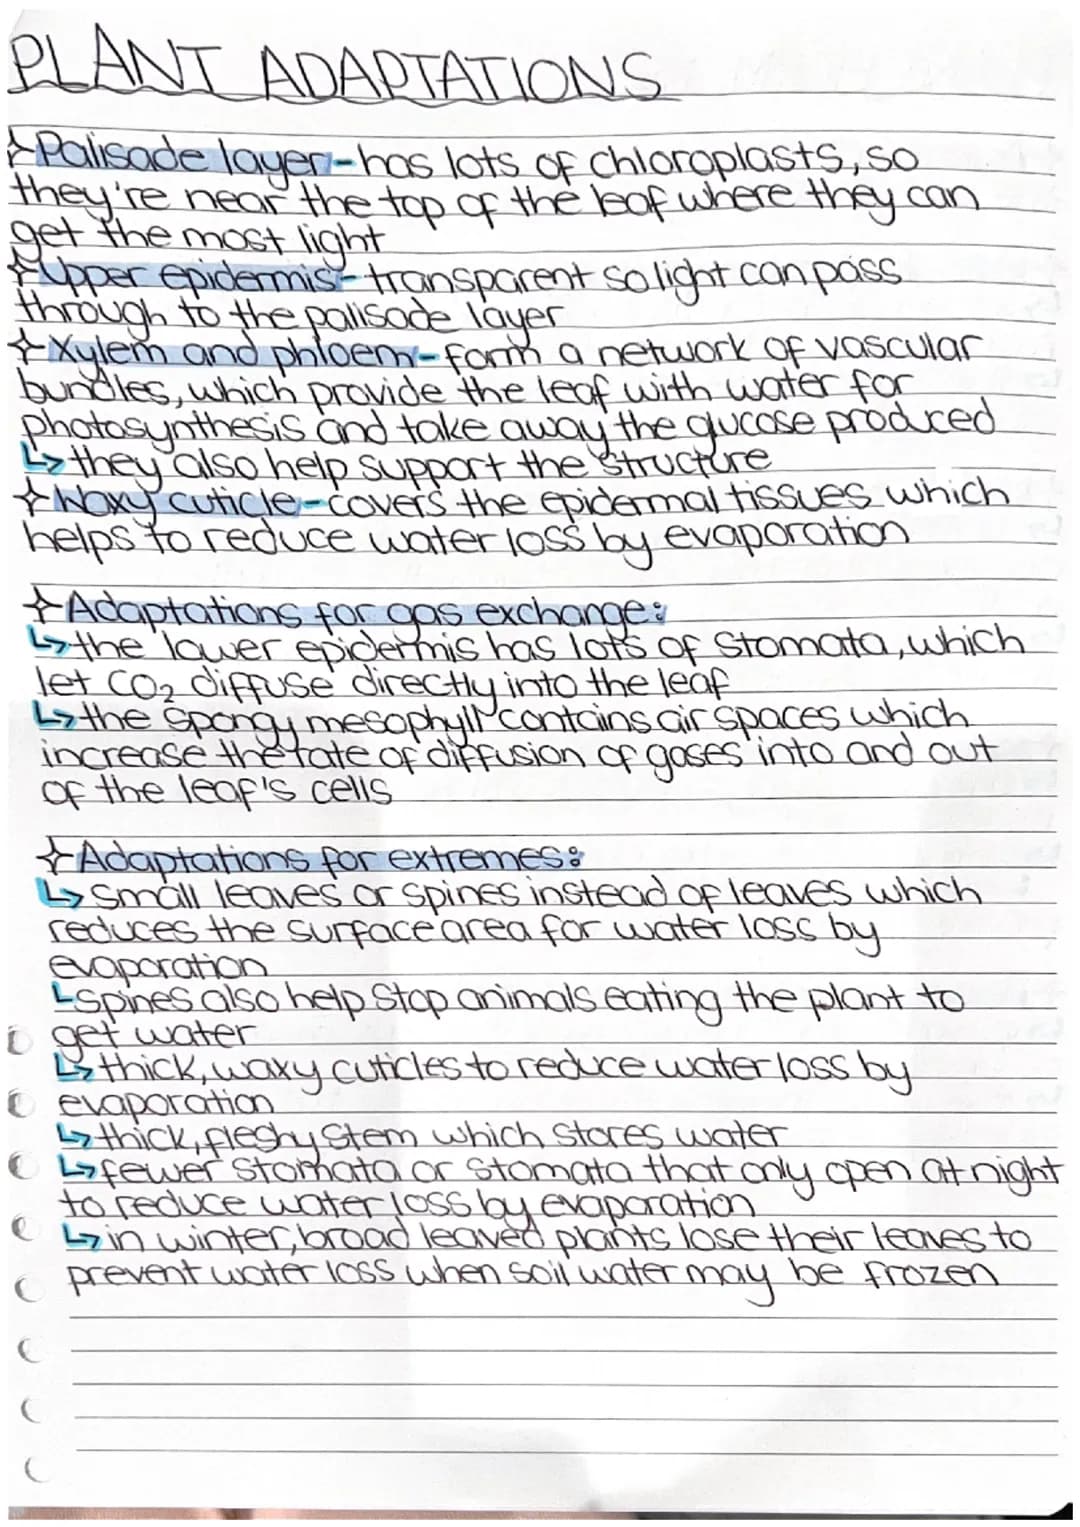 PLANT ADAPTATIONS
✧Palisade layer-has lots of chloroplasts, so
they're near the top of the leaf where they can
get the most light
✧Upper epidermis-transparent so light can pass
through to the palisade layer
✧Xylem and phloem-form a network of vascular
bundles, which provide the leaf with water for
photosynthesis and take away the glucose produced
↳they also help support the structure
✧Waxy cuticle-covers the epidermal tissues which
helps to reduce water loss by evaporation
✧Adaptations for gas exchange:
↳the lower epidermis has lots of stomata, which
let CO₂ diffuse directly into the leaf
↳the spongy mesophyll contains air spaces which
increase the rate of diffusion of gases into and out
of the leaf's cells
✧Adaptations for extremes:
↳small leaves or spines instead of leaves which
reduces the surface area for water loss by
evaporation
↳spines also help stop animals eating the plant to
get water
↳thick, waxy cuticles to reduce water loss by
evaporation
↳thick, fleshy stem which stores water
↳fewer stomata or stomata that only open at night
to reduce water loss by evaporation
↳in winter, broad leaved plants lose their leaves to
prevent water loss when soil water may be frozen